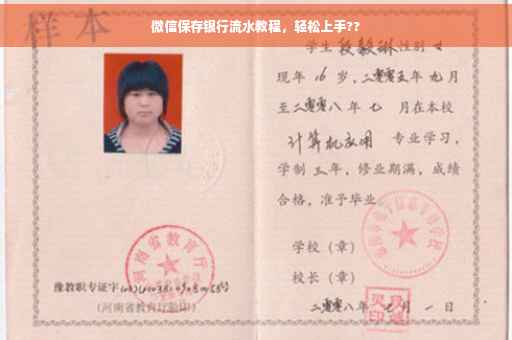 微信保存银行流水教程，轻松上手??
样本
学生 段毅琳 性别 女
现年 16 岁，二零零五年 九 月
至二零零八年 七 月在本校
计算机应用 专业学习，
学制 三 年，修业期满，成绩
合格，准予毕业
学校（章）
校长（章）
二零零八年 七 月 一 日
河南省教育厅
豫教职专证字
（河南省教育厅验印）